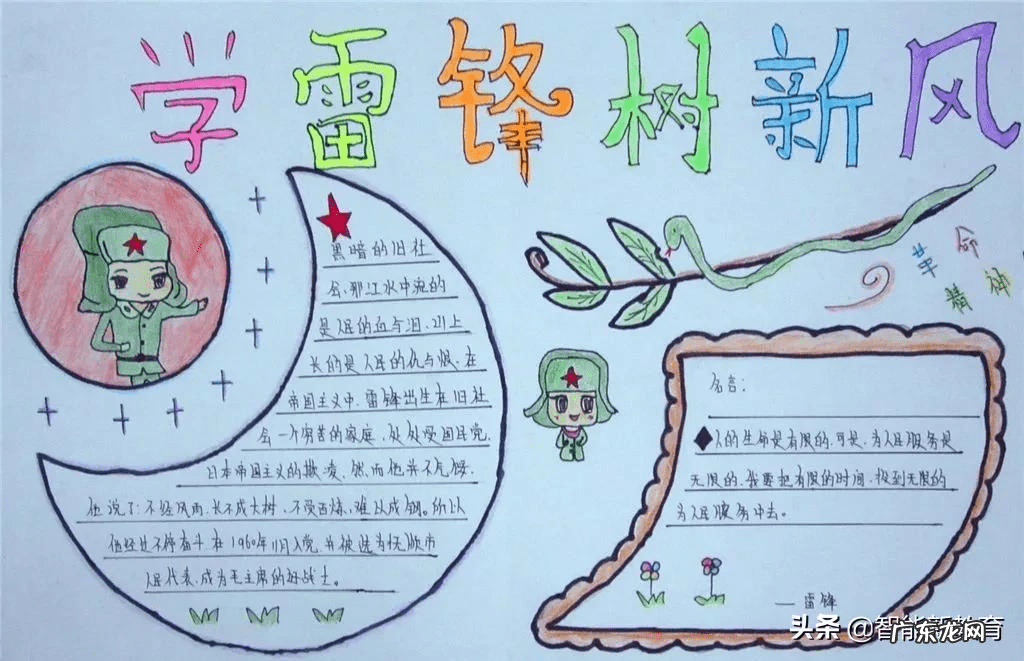 学雷锋树新风
革命
精神
黑暗的旧社
会,那江水中流的
是人民的血与泪,上
长的是人民的仇与恨,在
帝国主义中,雷锋出生在旧社
会一个穷苦的家庭,处处受国民党,
日本帝国主义的欺凌,然而他并不气馁,
他说了:不经风雨,长不成大树,不受百炼,难以成钢。所以
他经过不停奋斗在1960年11月入党,并被选为抚顺市
人民代表,成为毛主席的好战士。
名言:
人的生命是有限的,可是,为人民服务是
无限的,我要把有限的时间,投到无限的
为人民服务中去。
——雷锋
头条 @智能教育
广东龙网